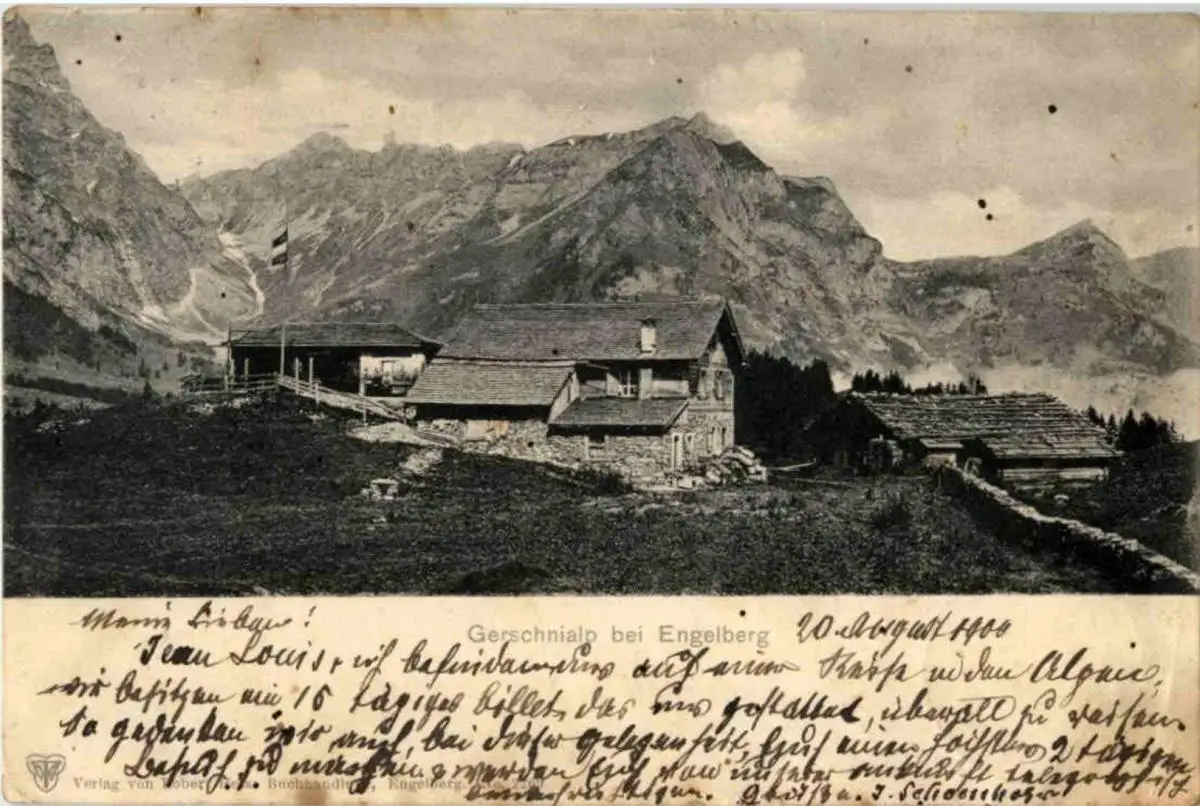 Meine Lieben!
Gerschnialp bei Engelberg
20 August 1900
Jean Louis, & ich befinden uns auf einer Reise in den Alpen,
wir besitzen ein 15 tägiges billet, das uns gestattet, überall zu reisen
So gedenken wir auch, bei dieser Gelegenheit, Euch einen 2 tägigen
Besuch zu machen & werden Euch von unserer Ankunft telegraphisch
Verlag von Robert Hess, Buchhandlung, Engelberg.
benachrichtigen. Grüsse J.